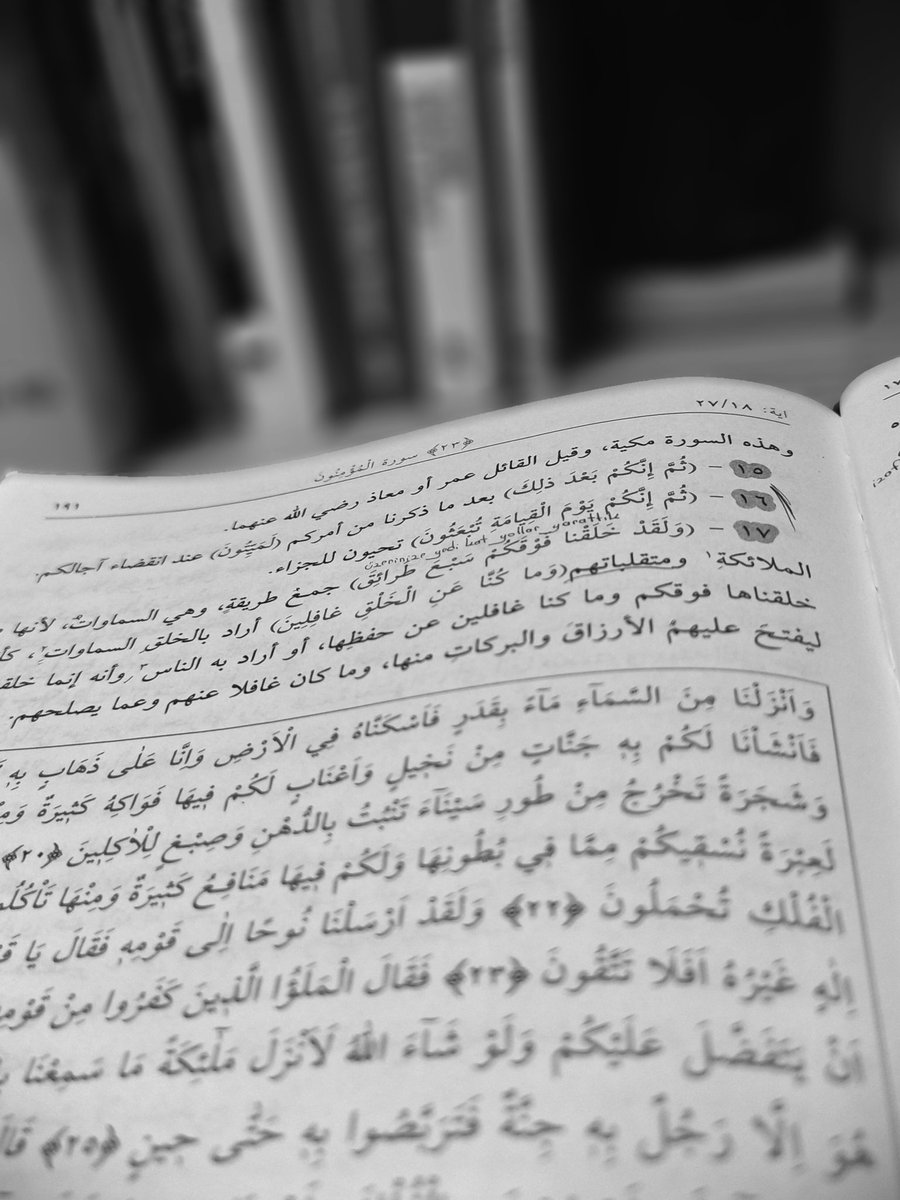 اية: ٢٧/١٨
﴿٢٣﴾ سورة الْمُؤْمِنُونَ
١٩١
وهذه السورة مكية، وقيل القائل عمر أو معاذ رضي الله عنهما.
١٥ – (ثُمَّ إِنَّكُمْ بَعْدَ ذلِكَ) بعد ما ذكرنا من أمركم (لَمَيِّتُونَ) عند انقضاء آجالكم.
١٦ – (ثُمَّ إِنَّكُمْ يَوْمَ الْقِيَامَةِ تُبْعَثُونَ) تحيون للجزاء.
üzerinize yedi kat yollar yarattık
١٧ – (وَلَقَدْ خَلَقْنا فَوْقَكُمْ سَبْعَ طَرائِقَ) جمعُ طريقةٍ، وهي السماواتُ، لأنها
الملائكةِ ١ ومتقلباتهم (وَما كُنَّا عَنِ الْخَلْقِ غافِلِينَ) أراد بالخلقِ السماواتِ ٢،
خلقناها فوقكم وما كنا غافلين عن حفظِها، أو أراد به الناس ٣ وأنه إنما
ليفتحَ عليهمُ الأرزاقَ والبركاتِ منها، وما كان غافلا عنهم وعما يصلحهم.
وَاَنْزَلْنَا مِنَ السَّمَآءِ مَآءً بِقَدَرٍ فَاَسْكَنَّاهُ فِي الْاَرْضِ وَاِنَّا عَلٰى ذَهَابٍ بِهٖ
فَاَنْشَاْنَا لَكُمْ بِهٖ جَنَّاتٍ مِنْ نَخٖيلٍ وَاَعْنَابٍ لَكُمْ فٖيهَا فَوَاكِهُ كَثٖيرَةٌ
وَشَجَرَةً تَخْرُجُ مِنْ طُورِ سَيْنَآءَ تَنْبُتُ بِالدُّهْنِ وَصِبْغٍ لِلْاٰكِلٖينَ ﴿٢٠﴾
لَعِبْرَةً نُسْقٖيكُمْ مِمَّا فٖي بُطُونِهَا وَلَكُمْ فٖيهَا مَنَافِعُ كَثٖيرَةٌ وَمِنْهَا
الْفُلْكِ تُحْمَلُونَ ﴿٢٢﴾ وَلَقَدْ اَرْسَلْنَا نُوحًا اِلٰى قَوْمِهٖ فَقَالَ يَا
اِلٰهٍ غَيْرُهُ اَفَلَا تَتَّقُونَ ﴿٢٣﴾ فَقَالَ الْمَلَؤُا الَّذٖينَ كَفَرُوا مِنْ
اَنْ يَتَفَضَّلَ عَلَيْكُمْ وَلَوْ شَآءَ اللّٰهُ لَاَنْزَلَ مَلٰٓئِكَةً مَا سَمِعْنَا
هُوَ اِلَّا رَجُلٌ بِهٖ جِنَّةٌ فَتَرَبَّصُوا بِهٖ حَتّٰى حٖينٍ ﴿٢٥﴾